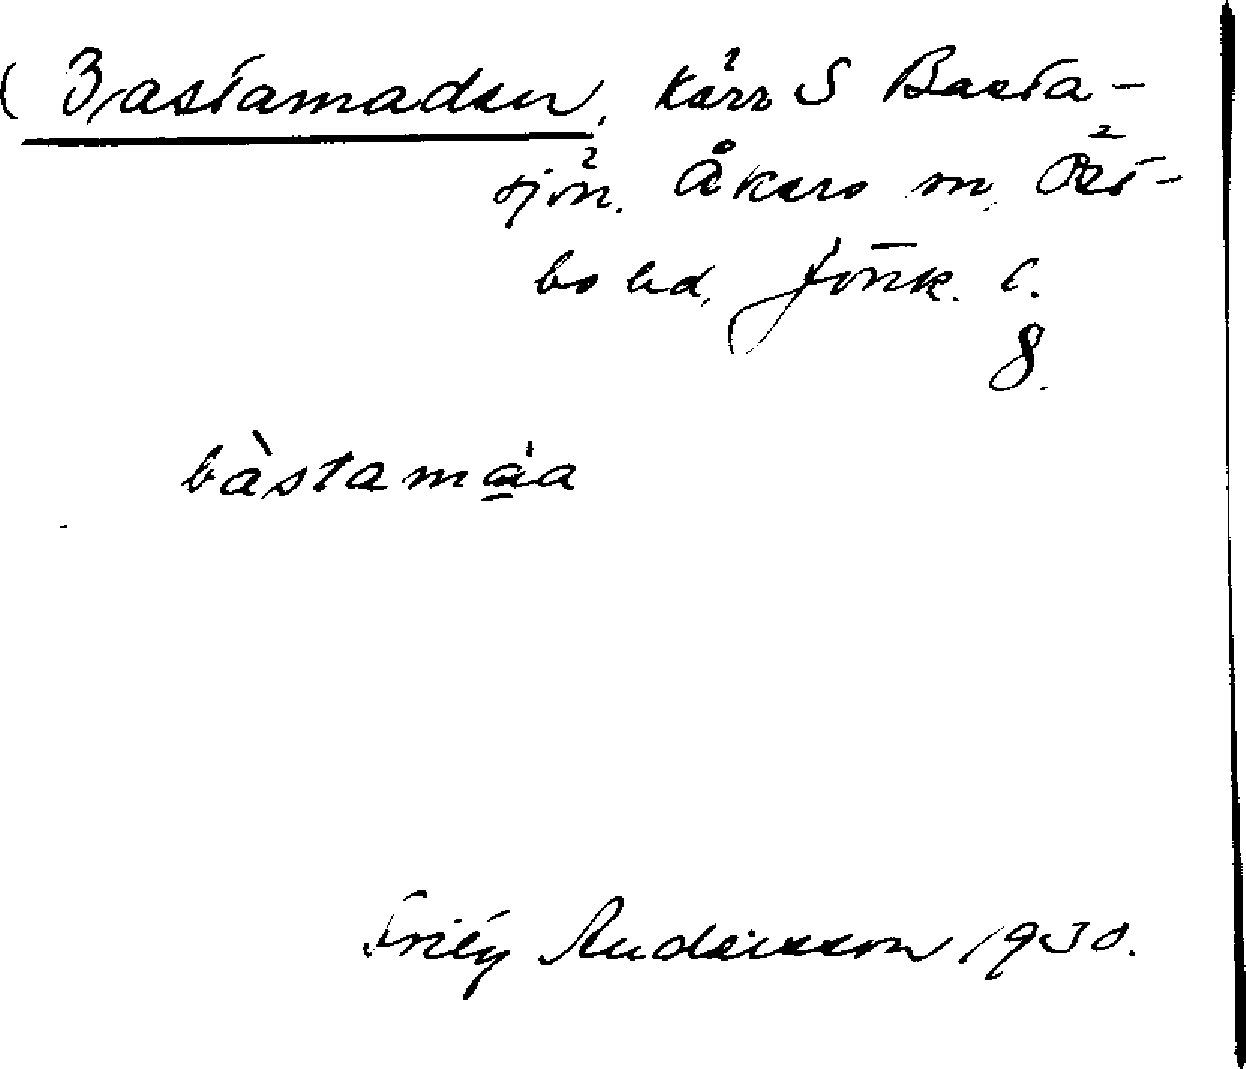 ( Bastamaden, kärr S Basta-
sjön. Åkers sn, Öst-
bo hd, Jönk. l.
8.
bàstamáa
Andersson 1930.